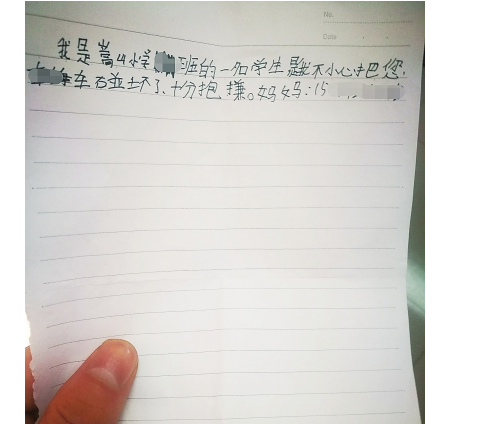 No.
Date
我是嵩山小学 班的一名学生是我不小心把您
车碰坏了.十分抱歉。妈妈:15